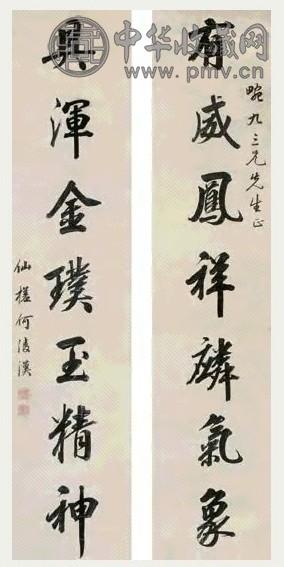 中华收藏网
www.pmv.cn
畹九三兄先生正
有威鳳祥麟氣象
具渾金璞玉精神
仙槎何凌漢